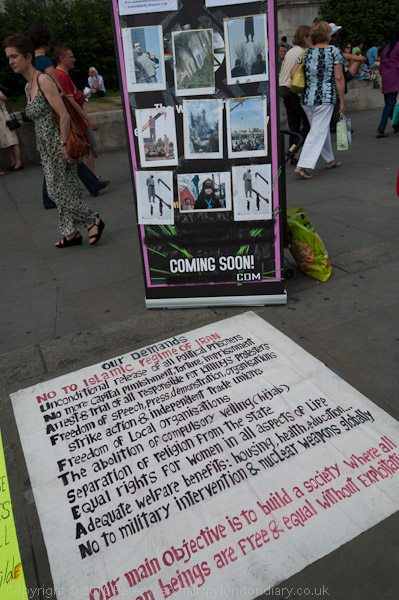 COMING SOON!
COM
OUR DEMANDS
NO TO ISLAMIC REGIME OF IRAN
Unconditional release of all political prisoners
No more capital punishment, torture, imprisonment
Arrest & trial of all responsible for killings protesters
Freedom of speech, press, demonstration, organisations
strike action & independent trade unions
Freedom of Local organisations
The abolition of compulsory veiling (hijab)
Separation of religion from the State
Equal rights for women in all aspects of life
Adequate welfare benefits: housing, health, education...
No to military intervention & nuclear weapons globally
our main objective is to build a society where all
human beings are free & equal without Exploitation
mylondondiary.co.uk